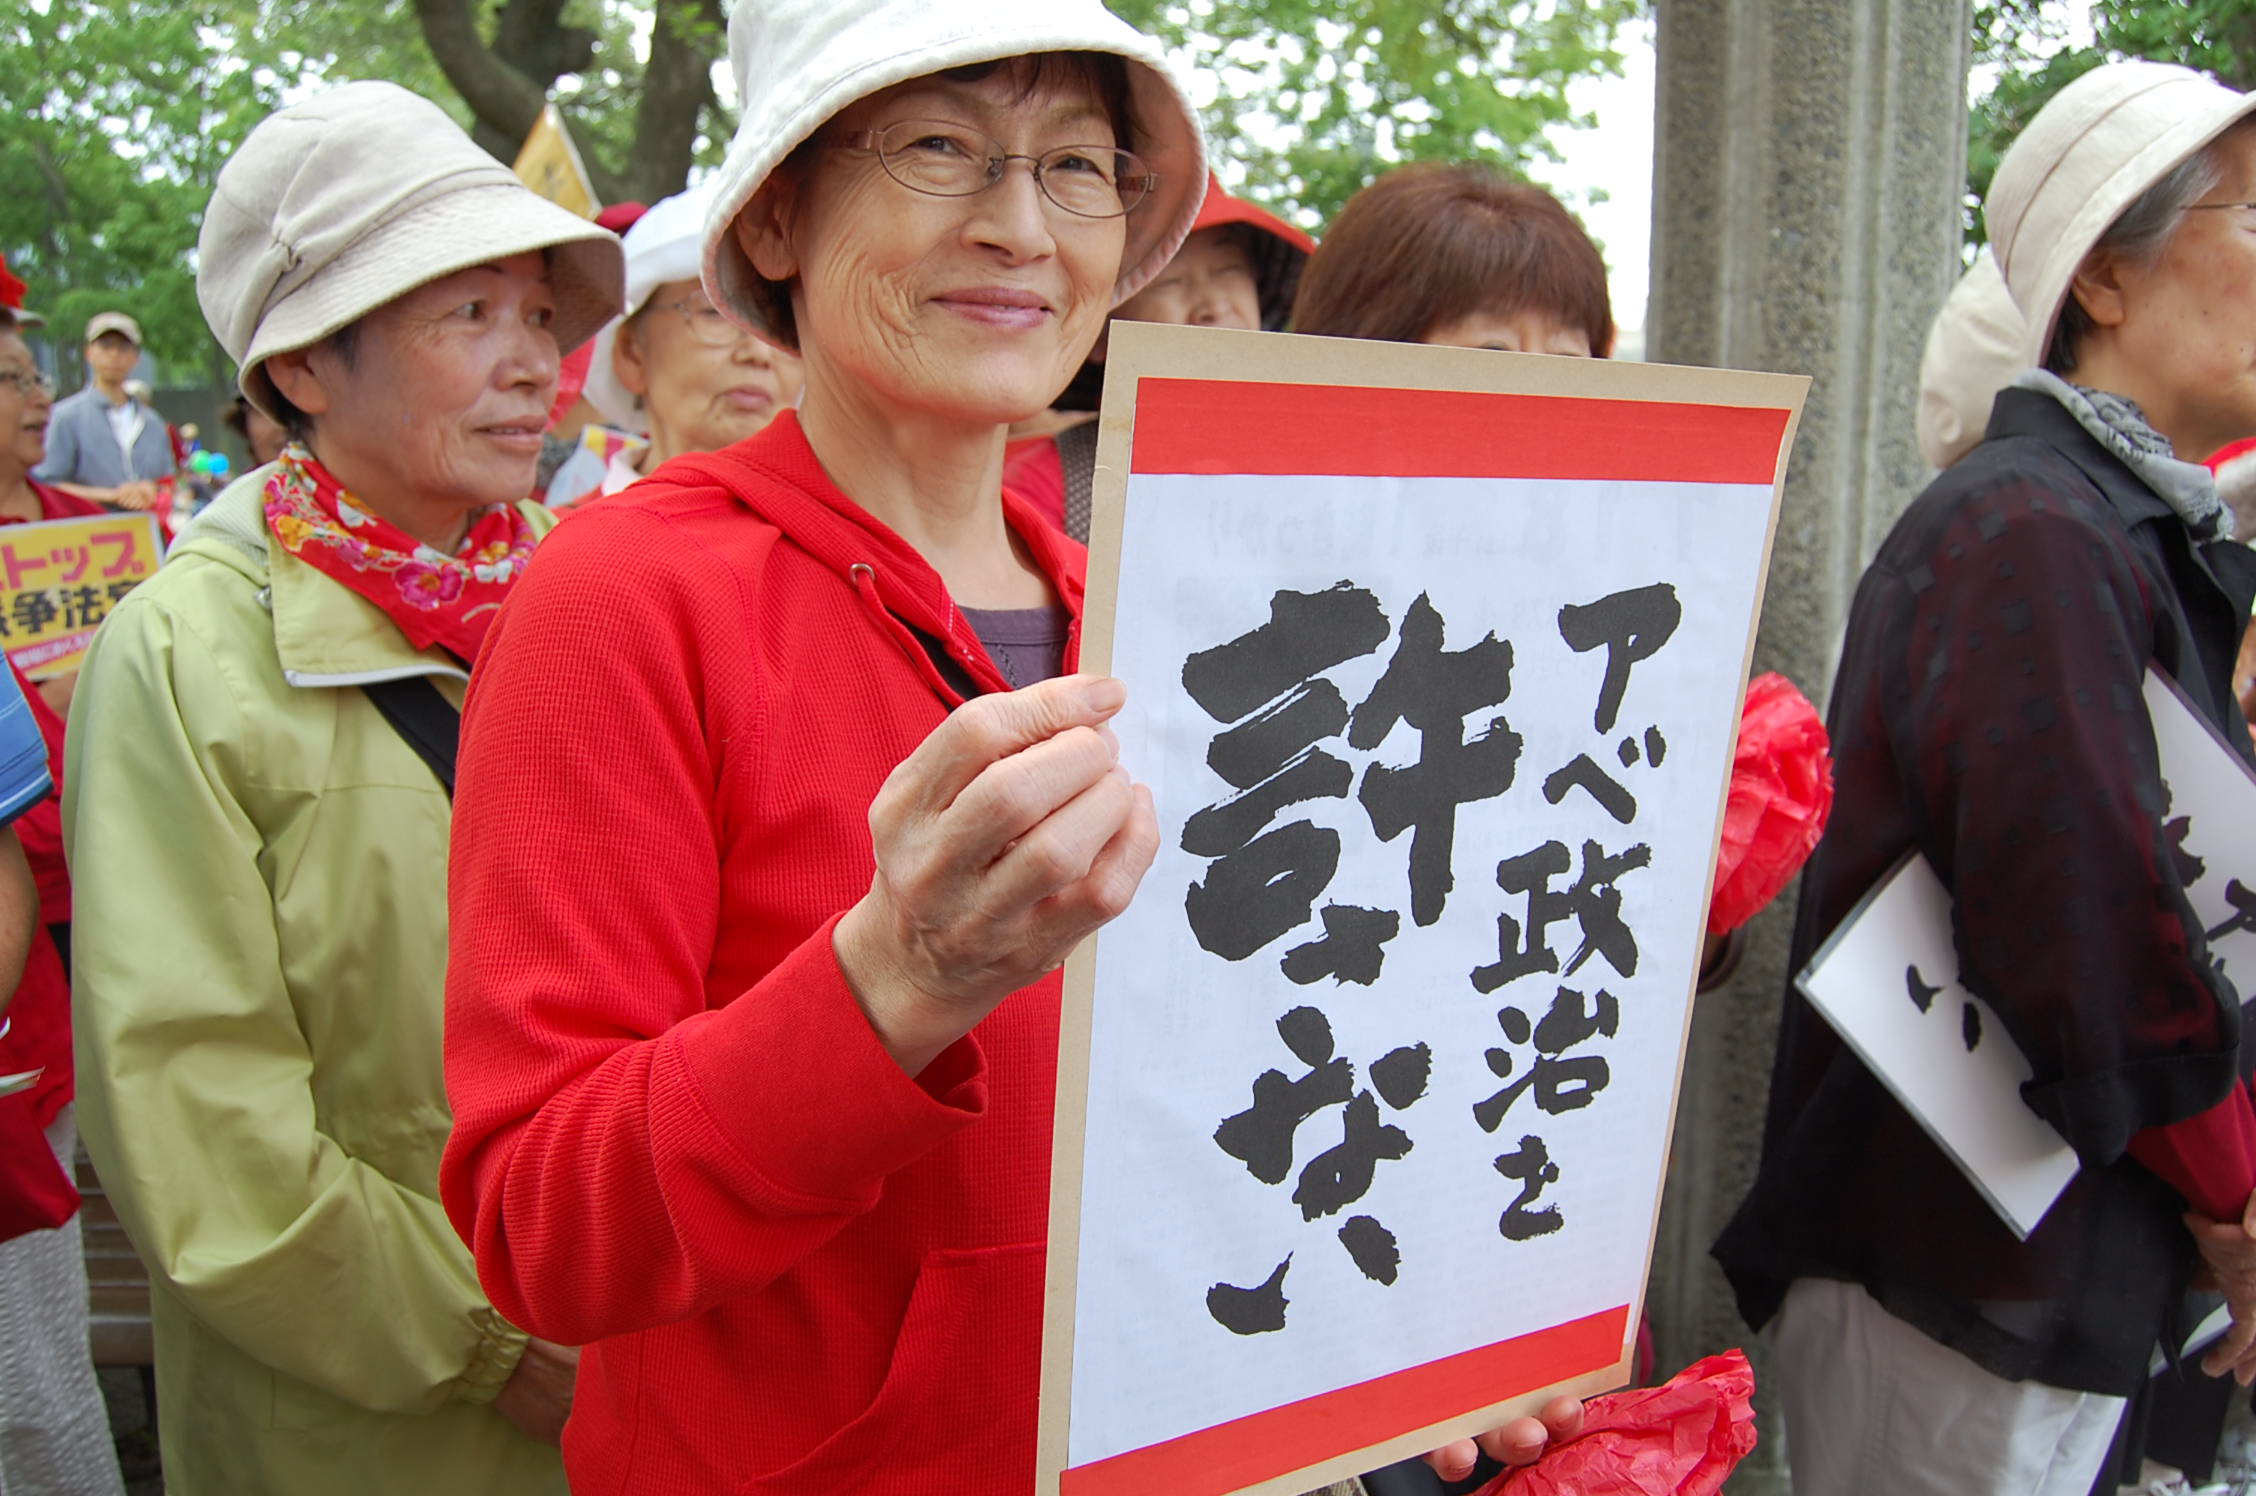 アベ政治を
許さない
トップ
争法